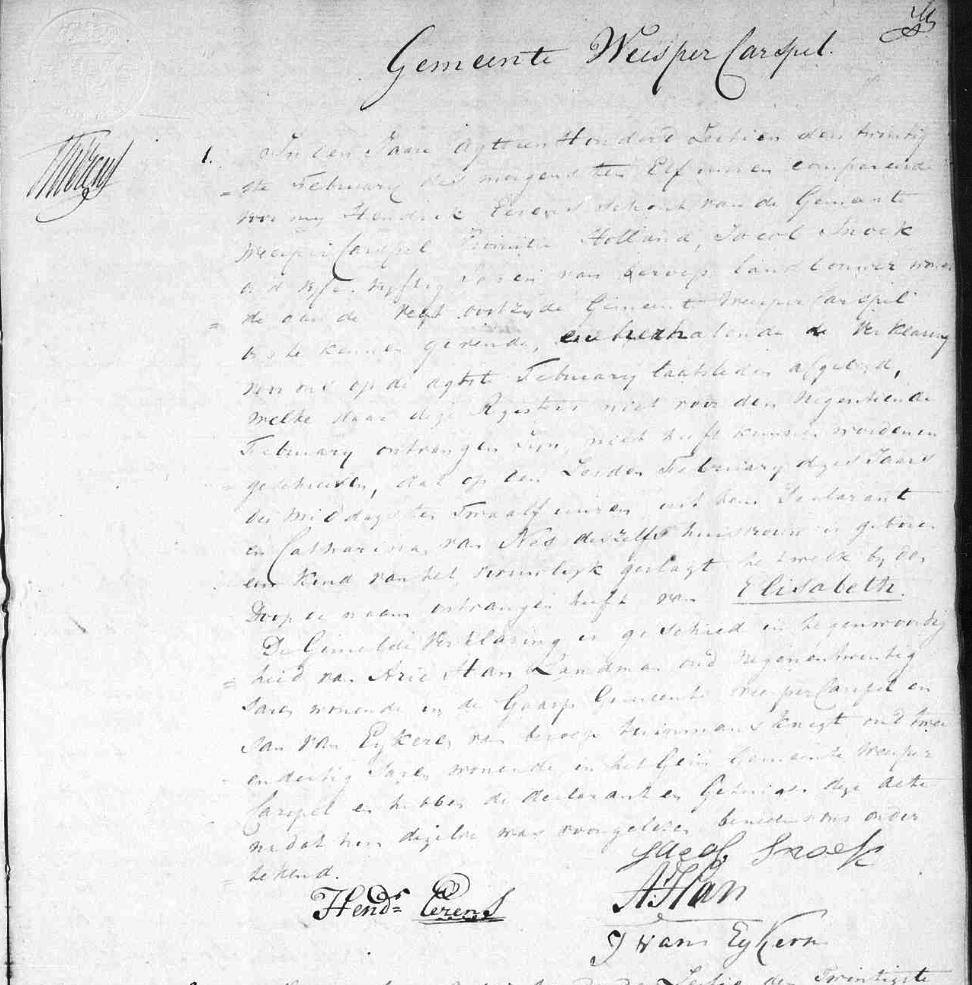 Gemeente Weesper Carspel.
1. In den Jaare Agttien Honderd Zestien den twintig
ste February des morgens ten Elf uuren compareerde
voor my Hendrik Eerens schout van de Gemeente
Weesper Carspel Provintie Holland, Jacob Snoek
oud vyftig Jaren van beroep landbouwer wonen
de aan de Vegt oostzyde Gemeente Weesper Carspel
ons te kennen gevende, en herhalende de Verklaring
voor ons op de agtste February laatstleden afgelegd,
welke daar deze Registers niet voor den Negentiende
February ontvangen zyn, niet heeft kunnen worden in
geschreven, dat op den Zesden February dezes Jaars
des middags ten Twaalf uuren uit hem Declarant
en Catharina van Nes deszelfs huisvrouw is geboren
een kind van het vrouwlyk geslagt hetwelk by den
Doop de naam ontvangen heeft van Elisabeth.
De Gemelde Verklaring is geschied in tegenwoordig
heid van Arie Han Landman oud negenentwintig
Jaren wonende in de Gaasp Gemeente Weesper Carspel en
Jan van Eykeren van beroep tuinmans knegt oud twee
en dertig Jaren wonende in het Gein Gemeente Weesper
Carspel en hebben de declarant en Getuigen deze acte
na dat hun dezelve was voorgelezen benevens ons onder
tekend.
Jacob Snoek
Hendk Eerens
A Han
J van Eykeren
den Twintigste